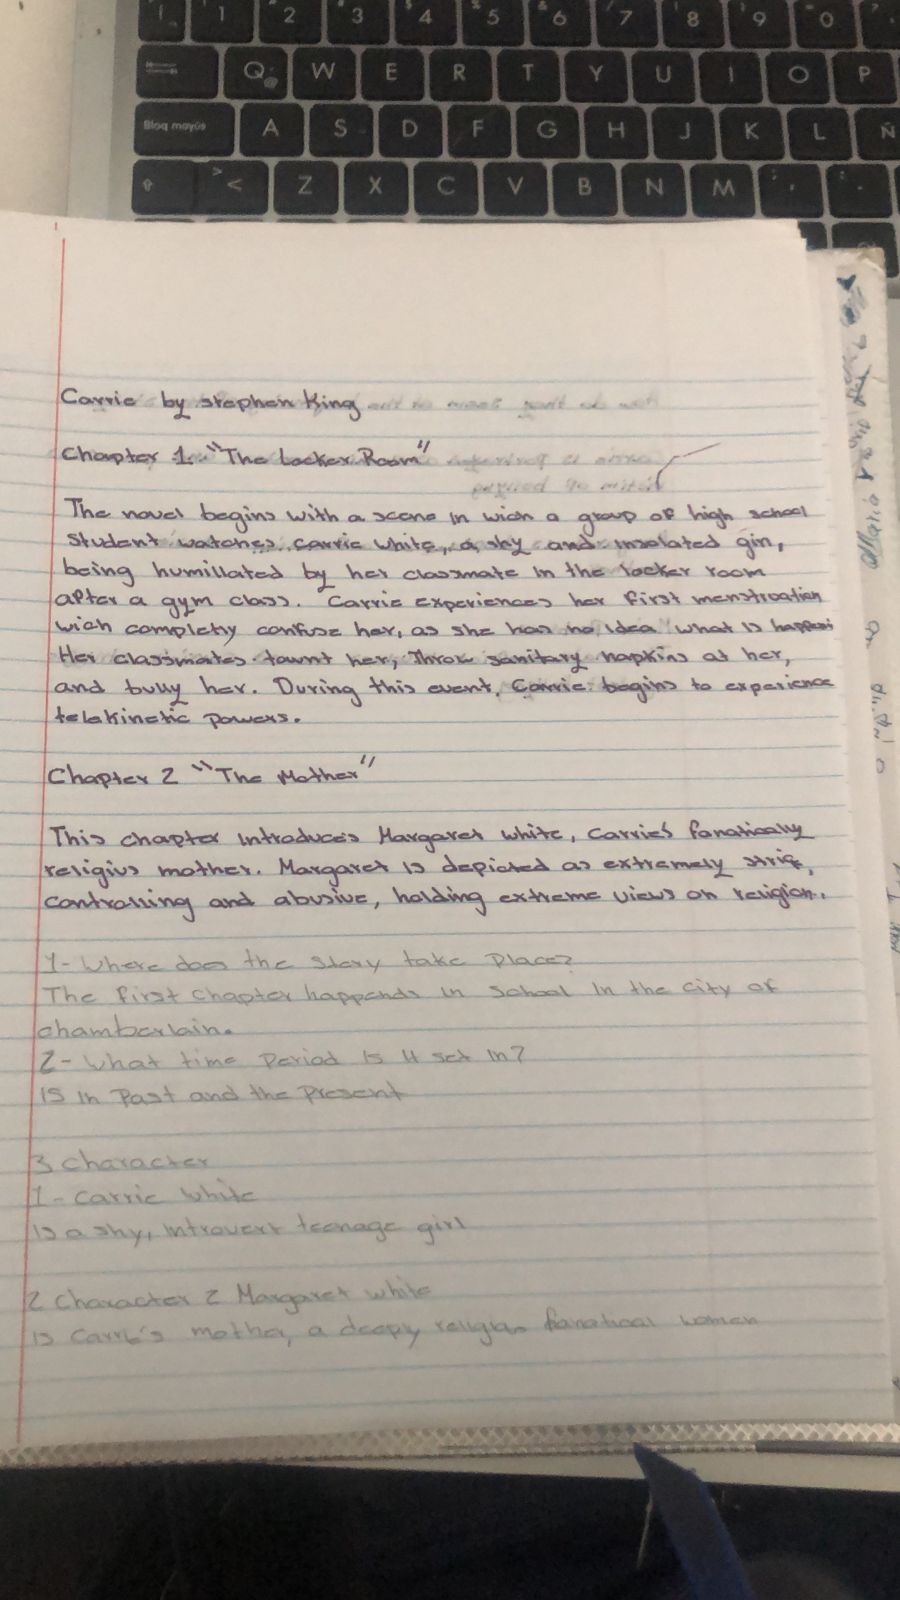 1 2 3 4 5 6 7 8 9 0
Q W E R T Y U I O P
Bloq mayús A S D F G H J K L Ñ
> < Z X C V B N M
Carrie by stephen King
Chapter 1 "The Locker Room"
The novel begins with a scene in wich a group of high school
student watches carrie white, a shy and insolated girl,
being humillated by her classmate in the locker room
after a gym class. Carrie experiences her first menstruation
wich complety confuse her, as she has no idea what is happen
Her classmates taunt her, throw sanitary napkins at her,
and bully her. During this event, Carrie begins to experience
telekinetic powers.
Chapter 2 "The Mother"
This chapter introduces Margaret white, Carrie's fanatically
religius mother. Margaret is depicted as extremely
controlling and abusive, holding extreme views on religion.
1- Where does the story take place?
The first chapter happends in school in the city of
chamberlain.
2- What time period is it set in?
is in past and the present
3 character
1- Carrie White
is a shy, introvert teenage girl
2 Character 2 Margaret white
is Carrie's mother, a deeply fanatical women